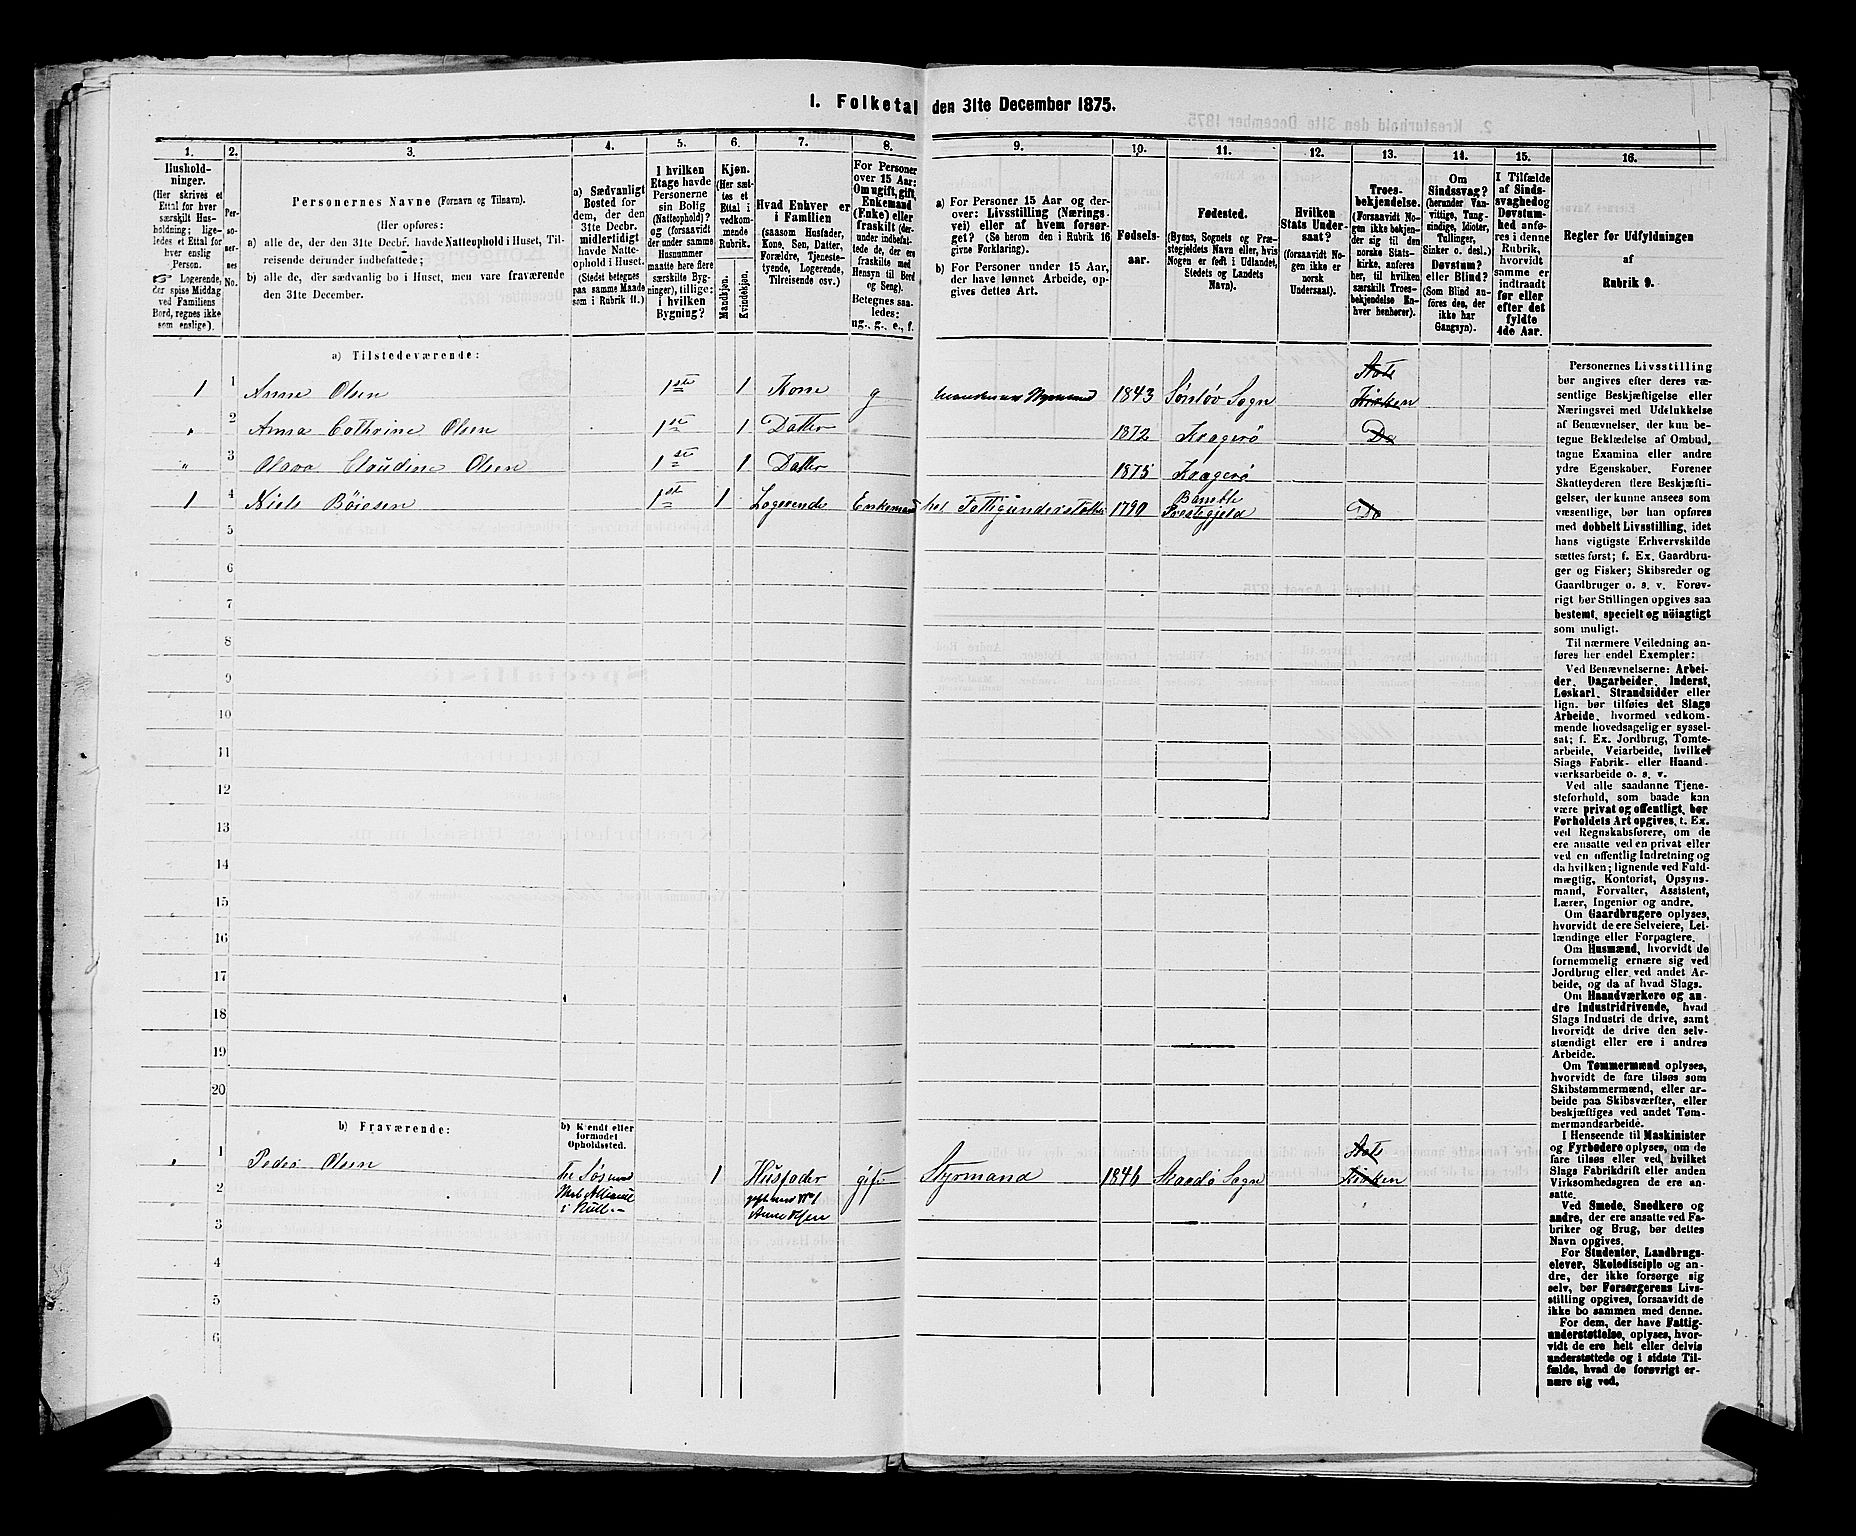 1. Folketal den 31te December 1875.
1.
2.
3.
4.
5.
6.
7.
8.
9.
10.
11.
12.
13.
14.
15.
16.
Husholdninger.
(Her skrives et
Ettal for hver
særskilt Husholdning;
ligeledes et Ettal for
hver enslig
Person.
Logerende,
der spise Middag
ved Familiens
Bord, regnes ikke
som enslige).
Personernes
No.
Personernes Navne (Fornavn og Tilnavn).
(Her opføres:
a) alle de, der den 31te Decbr. havde Natteophold i Huset, Tilreisende
derunder indbefattede;
b) alle de, der sædvanlig bo i Huset, men vare fraværende
den 31te December.
a) Sædvanligt
Bosted for
dem, der den
31te Decbr.
midlertidigt
havde Natteophold
i Huset.
(Stedet betegnes
paa samme Maade
som i Rubrik 11.)
I hvilken
Etage havde
Personerne
sin Bolig
(Natteophold)?
og (forsaavidt
der under samme
Husnummer
maatte høre flere
særskilte Bygninger),
tillige:
i hvilken
Bygning?
Kjøn.
(Her sættes
et
Ettal i
vedkommende
Rubrik.
Mandkjøn.
Kvindekjøn.
Hvad Enhver er
i Familien
(saasom Husfader,
Kone, Søn, Datter,
Forældre, Tjenestetyende,
Logerende,
Tilreisende osv.)
For Personer
over 15 Aar:
Om ugift, gift,
Enkemand
(Enke) eller
fraskilt (derunder
indbefattede
de, der ere
fraskilte med
Hensyn til Bord
og Seng).
Betegnes saaledes:
ug., g., e., f.
a) For Personer 15 Aar og derover:
Livsstilling (Næringsvei)
eller af hvem forsørget?
(Se herom den i Rubrik 16
givne Forklaring).
b) For Personer under 15 Aar,
der have lønnet Arbeide, opgives
dettes Art.
Fødselsaar.
Fødested.
(Byens, Sognets og Præstegjeldets
Navn eller, hvis
Nogen er født i Udlandet,
Stedets og Landets
Navn).
Hvilken
Stats Undersaat?
(forsaavidt Nogen
ikke er
norsk
Undersaat).
Troesbekjendelse.
(Forsaavidt Nogen
ikke bekjender
sig til den
norske Statskirke,
anføres
her, til hvilken
særskilt Troesbekjendelse
Enhver
henhører).
Om
Sindssvag?
(herunder Vanvittige,
Tungsindige,
Idioter,
Tullinger,
Sinker o. desl.)
Døvstum?
eller Blind?
(Som Blind anføres
de, der
ikke har
Gangsyn).
I Tilfælde
af Sindssvaghed
og
Døvstumhed
anføres
i denne
Rubrik,
hvorvidt
samme er
indtraadt
før eller
efter det
fyldte
4de Aar.
Regler for Udfyldningen
af
Rubrik 9.
a) Tilstedeværende:
1 1 Anne Olsen 1ste 1 Kone g 1843 Sogn Stats Kirken
" 2 Anna Cathrine Olsen 1ste 1 Datter 1872 Kragerø Do
" 3 Olava Claudine Olsen 1ste 1 Datter 1875 Kragerø
1 4 Niels Böresen 1ste 1 Logerende Enkemand har Fattigunderstøttelse 1790 Bamble Præstegjeld Do
5
6
7
8
9
10
11
12
13
14
15
16
17
18
19
20
b) Fraværende:
b) Kjendt eller
formodet
Opholdssted.
" 1 Peder Olsen 1 Husfader gift Styrmand 1846 Skaadö Sogn Stats Kirken
2 gift med No 1
i Anne Olsen
3
4
5
6
Personernes Livsstilling
bør angives efter deres væsentlige
Beskjæftigelse eller
Næringsvei med Udelukkelse
af Benævnelser, der kun betegne
Beklædelse af Ombud,
tagne Examina eller andre
ydre Egenskaber. Forener
Skatteyderen flere Beskjæftigelser,
der kunne ansees som
væsentlige, bør han opføres
med dobbelt Livsstilling, idet
hans vigtigste Erhvervskilde
sættes først; f. Ex. Gaardbruger
og Fisker; Skibsreder og
Gaardbruger o. s. v. Forøvrigt
bør Stillingen opgives saa
bestemt, specielt og nöiagtigt
som muligt.
Til nærmere Veiledning anføres
her endel Exempler:
Ved Benævnelserne: Arbeider,
Dagarbeider, Inderst,
Løskarl, Strandsidder eller
lign. bør tilføies det Slags
Arbeide, hvormed vedkommende
hovedsagelig er sysselsat;
f. Ex. Jordbrug, Tomtearbeide,
Veiarbeide, hvilket
Slags Fabrik- eller Haandværksarbeide
o. s. v.
Ved alle saadanne Tjenesteforhold,
som baade kan
være privat og offentligt, bør
Forholdets Art opgives, t. Ex.
ved Regnskabsførere, om de
ere ansatte ved en privat eller
ved en offentlig Indretning og
da hvilken; lignende ved Fuldmægtig,
Kontorist, Opsynsmand,
Forvalter, Assistent,
Lærer, Ingeniør og andre.
Om Gaardbrugere oplyses,
hvorvidt de ere Selveiere, Leilændinge
eller Forpagtere.
Om Husmænd, hvorvidt de
fornemmelig ernære sig ved
Jordbrug eller ved andet Arbeide,
og da af hvad Slags.
Om Haandværkere og andre
Industridrivende, hvad
Slags Industri de drive, samt
hvorvidt de drive den selvstændigt
eller ere i andres
Arbeide.
Om Tømmermænd oplyses,
hvorvidt de fare tilsøs som
Skibstømmermænd, eller arbeide
paa Skibsværfter, eller
beskjæftiges ved andet Tømmermandsarbeide.
I Henseende til Maskinister
og Fyrbødere oplyses, om de
fare tilsøs eller ved, hvilket
Slags Fabrikdrift eller anden
Virksomhedsgren de ere ansatte.
Ved Smede, Snedkere og
andre, der ere ansatte ved Fabriker
og Brug, bør dettes
Navn opgives.
For Studenter, Landbrugselever,
Skoledisciple og andre,
der ikke forsørge sig
selv, bør Forsørgerens Livsstilling
opgives, forsaavidt de
ikke bo sammen med denne.
For dem, der have Fattigunderstøttelse,
oplyses, hvorvidt
de ere helt eller delvis
understøttede og i sidste Tilfælde,
hvad de forøvrigt ernære
sig ved.